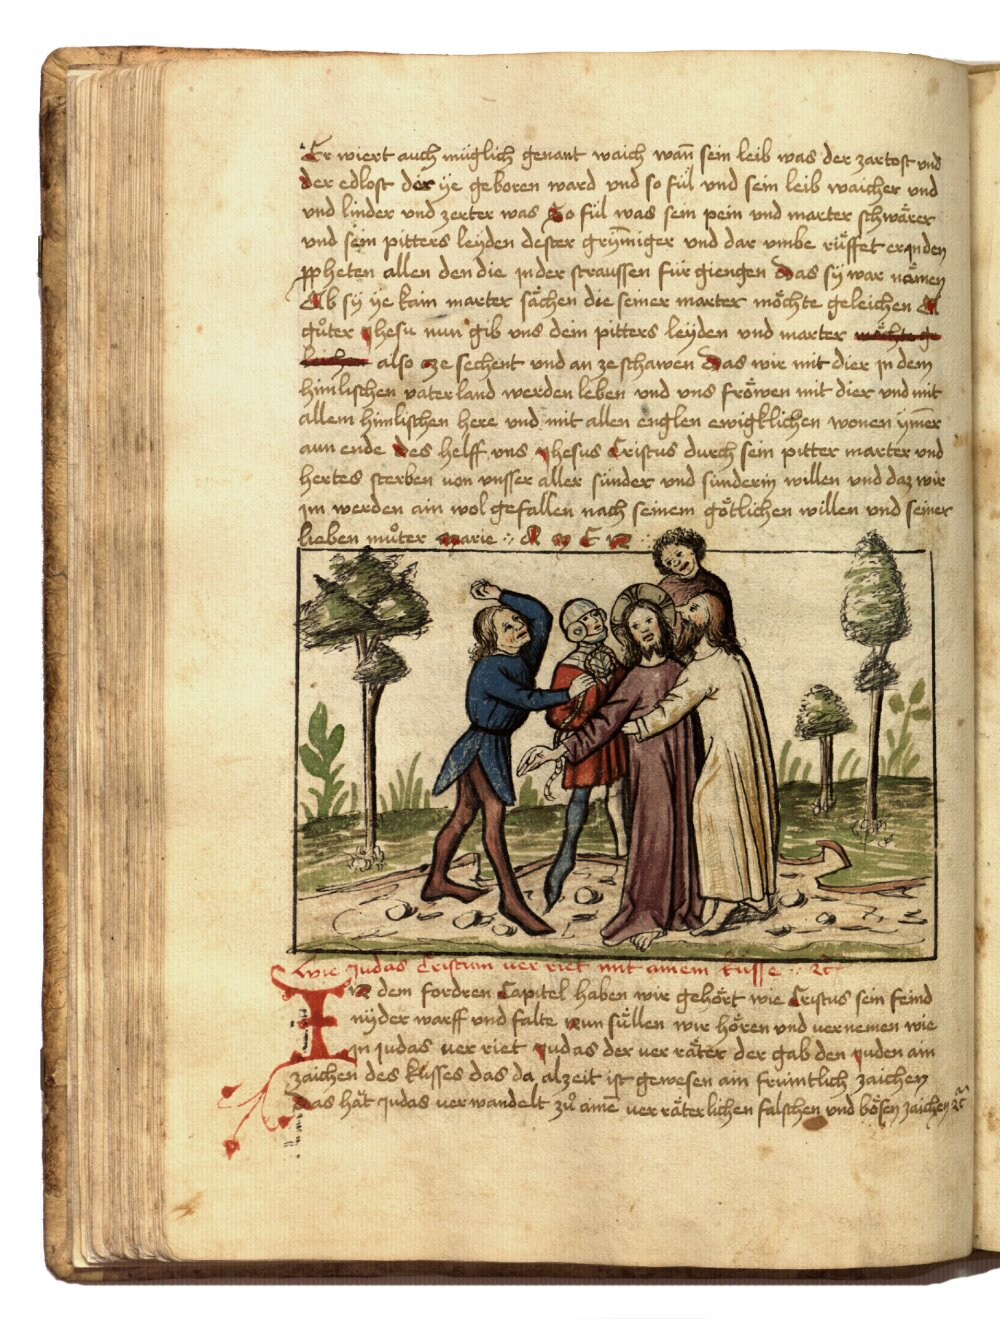 Er wiert auch müglich genant waich wañ sein leib was der zartost und
der edlost der ÿe geboren ward und so fúl und sein leib waicher und
und linder und zerter was So fúl was sein pein und marter schwärer
und sein pitters leÿden dester grÿm̃iger und dar umbe rüffet er jn den
ppheten allen den die jn der straussen für giengen Das sÿ war näment
Ob sÿ ÿe kain marter sächen die seiner marter möchte geleichen O
gůter Jhesu nun gib uns dein pitters leÿden und marter möchte ge
leichen also ze sechent und an ze schawen Das wir mit dier jn dem
him̃lischen vaterland werden leben und uns fröwen mit dier und mit
allem him̃lischen here und mit allen englen ewigklichen wonen ÿm̃er
aun ende Des helff uns Jhesus Cristus durch sein pitter marter und
hertes sterben von unsser aller sünder und sünderin willen und daz wir
jm werden ain wol gefallen nach seinem götlichen willen und seiner
lieben můter Marie A M E N
Wie Judas Cristum ver riet mit ainem kusse
In dem fordren Capitel haben wir gehört wie Cristus sein feind
nÿder warff und falte Nun süllen wir hören und vernemen wie
jn Judas ver riet Judas der ver räter der gab den Juden ain
zaichen des kusses das da alzeit ist gewesen ain früntlich zaichen
Das hät Judas verwandelt zů ainē verräterlichen falschen und bösen zaichen